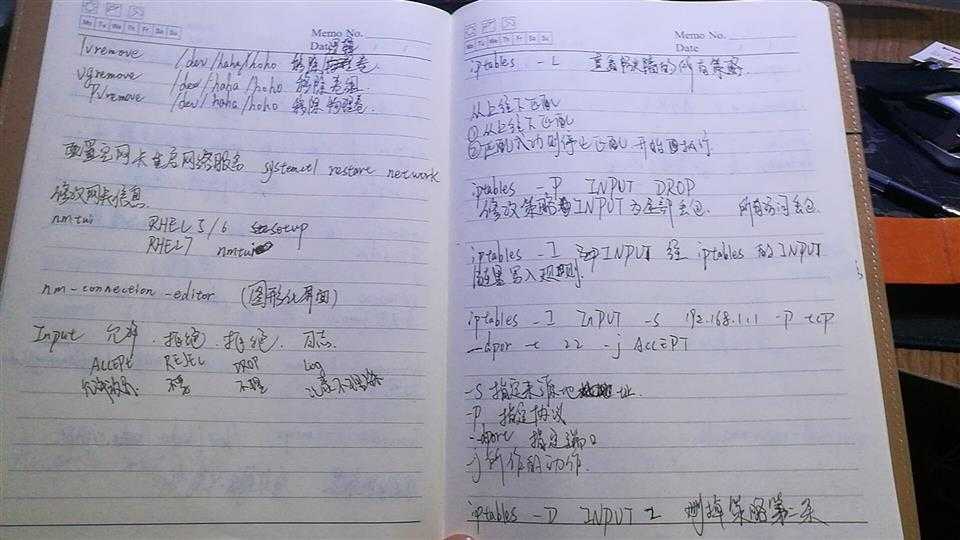 Mo Tu We Th Fr Sa Su
Memo No.
Date
lvremove /dev/haha/hoho 移除逻辑卷
vgremove /dev/haha/hoho 移除卷组
pvremove /dev/haha/hoho 移除物理卷
配置完网卡重启网络服务 systemctl restart network
修改网卡信息
nmtui RHEL 5/6 setup
RHEL7 nmtui
nm-connection-editor (图形化界面)
Input 允许 . 拒绝 . 拒绝 . 日志
ACCEPT REJEL DROP Log
不理
Mo Tu We Th Fr Sa Su
Memo No.
Date
iptables - L 查看防火墙的所有策略
从上往下匹配
①从上往下匹配
②匹配成功则停止匹配 开始执行
iptables - P INPUT DROP
修改策略 INPUT 为全部丢包. 所有访问丢包.
iptables - I INPUT 给 iptables 的 INPUT
随里写入规则
iptables - I INPUT -s 192.168.1.1 -p tcp
--dpor -t 22 -j ACCEPT
-s 指定来源地址.
-P 指定协议
--dport 指定端口
-j 所作的动作.
iptables -D INPUT 2 删掉策略第二条